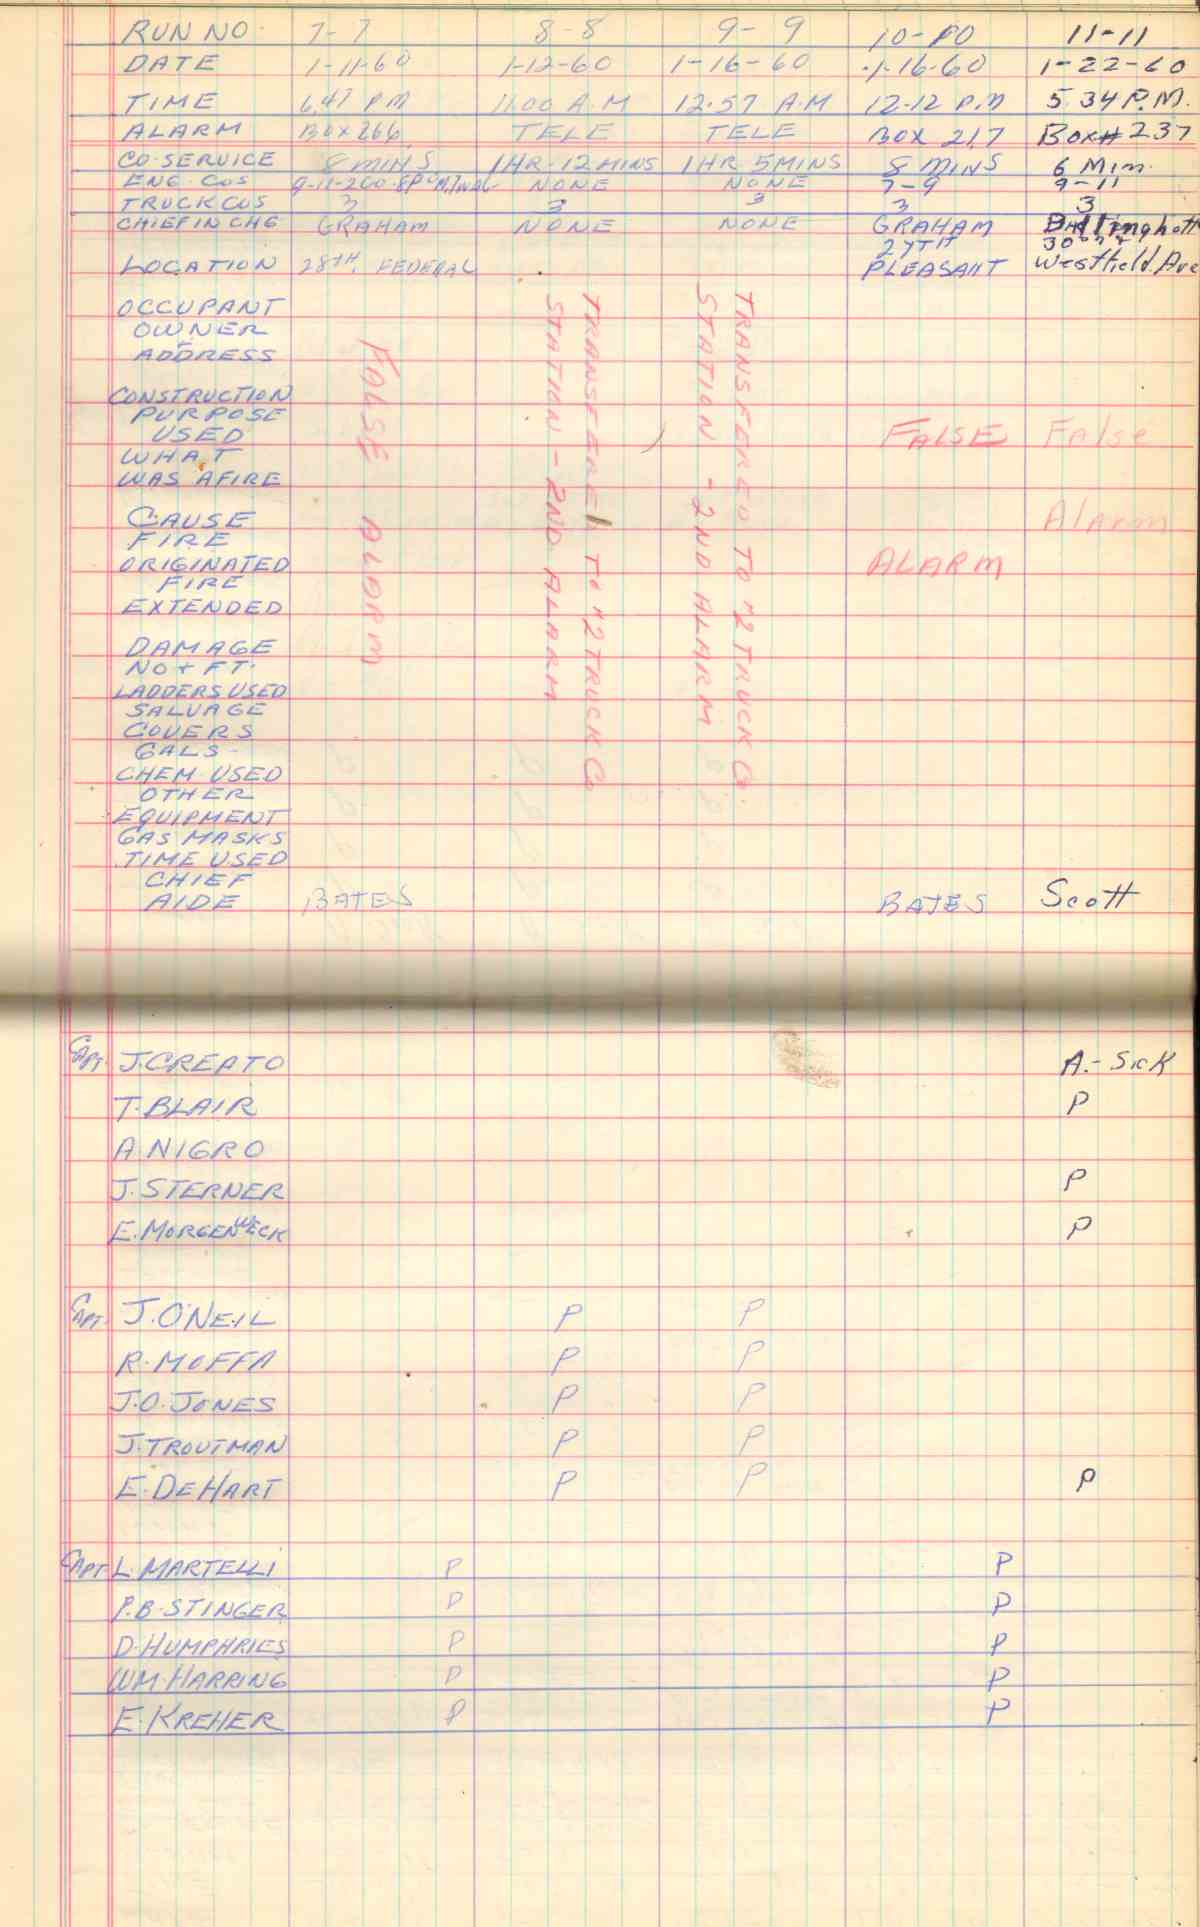 RUN NO. 7-7 8-8 9-9 10-10 11-11
DATE 1-11-60 1-12-60 1-16-60 1-16-60 1-22-60
TIME 6.47 PM 11.00 A.M 12.57 A.M 12-12 P.M 5.34 P.M.
ALARM BOX 266 TELE TELE BOX 217 Box# 237
CO-SERVICE 8 MINS 1HR-12 MINS 1HR 5MINS 8 MINS 6 Min.
ENG. COS 9-11-200 NONE NONE 7-9 9-11
TRUCK COS 3 3 3 3 3
CHIEF IN CHG GRAHAM NONE NONE GRAHAM
27TH
LOCATION 28TH. FEDERAL PLEASANT Westfield Ave
OCCUPANT
OWNER
ADDRESS
CONSTRUCTION
PURPOSE
USED
WHAT
WAS AFIRE
CAUSE
FIRE
ORIGINATED
FIRE
EXTENDED
DAMAGE
NO + FT.
LADDERS USED
SALVAGE
COVERS
GALS-
CHEM-USED
OTHER
EQUIPMENT
GAS MASKS
TIME USED
CHIEF
AIDE BATES BATES Scott
FALSE ALARM
TRANSFERED TO "2 TRUCK Co
STATION - 2ND ALARM
TRANSFERED TO "2 TRUCK Co.
STATION - 2ND ALARM
FALSE
ALARM
False
Alarm
CAPT. J. CREATO A.- Sick
T. BLAIR P
A NIGRO
J. STERNER P
E. MORGENWECK P
CAPT. J. O'NEIL P P
R. MOFFA P P
J. O. JONES P P
J. TROUTMAN P P
E. DEHART P P P
CAPT. L. MARTELLI P P
P. B. STINGER P P
D. HUMPHRIES P P
WM. HARRING P P
E. KREHER P P